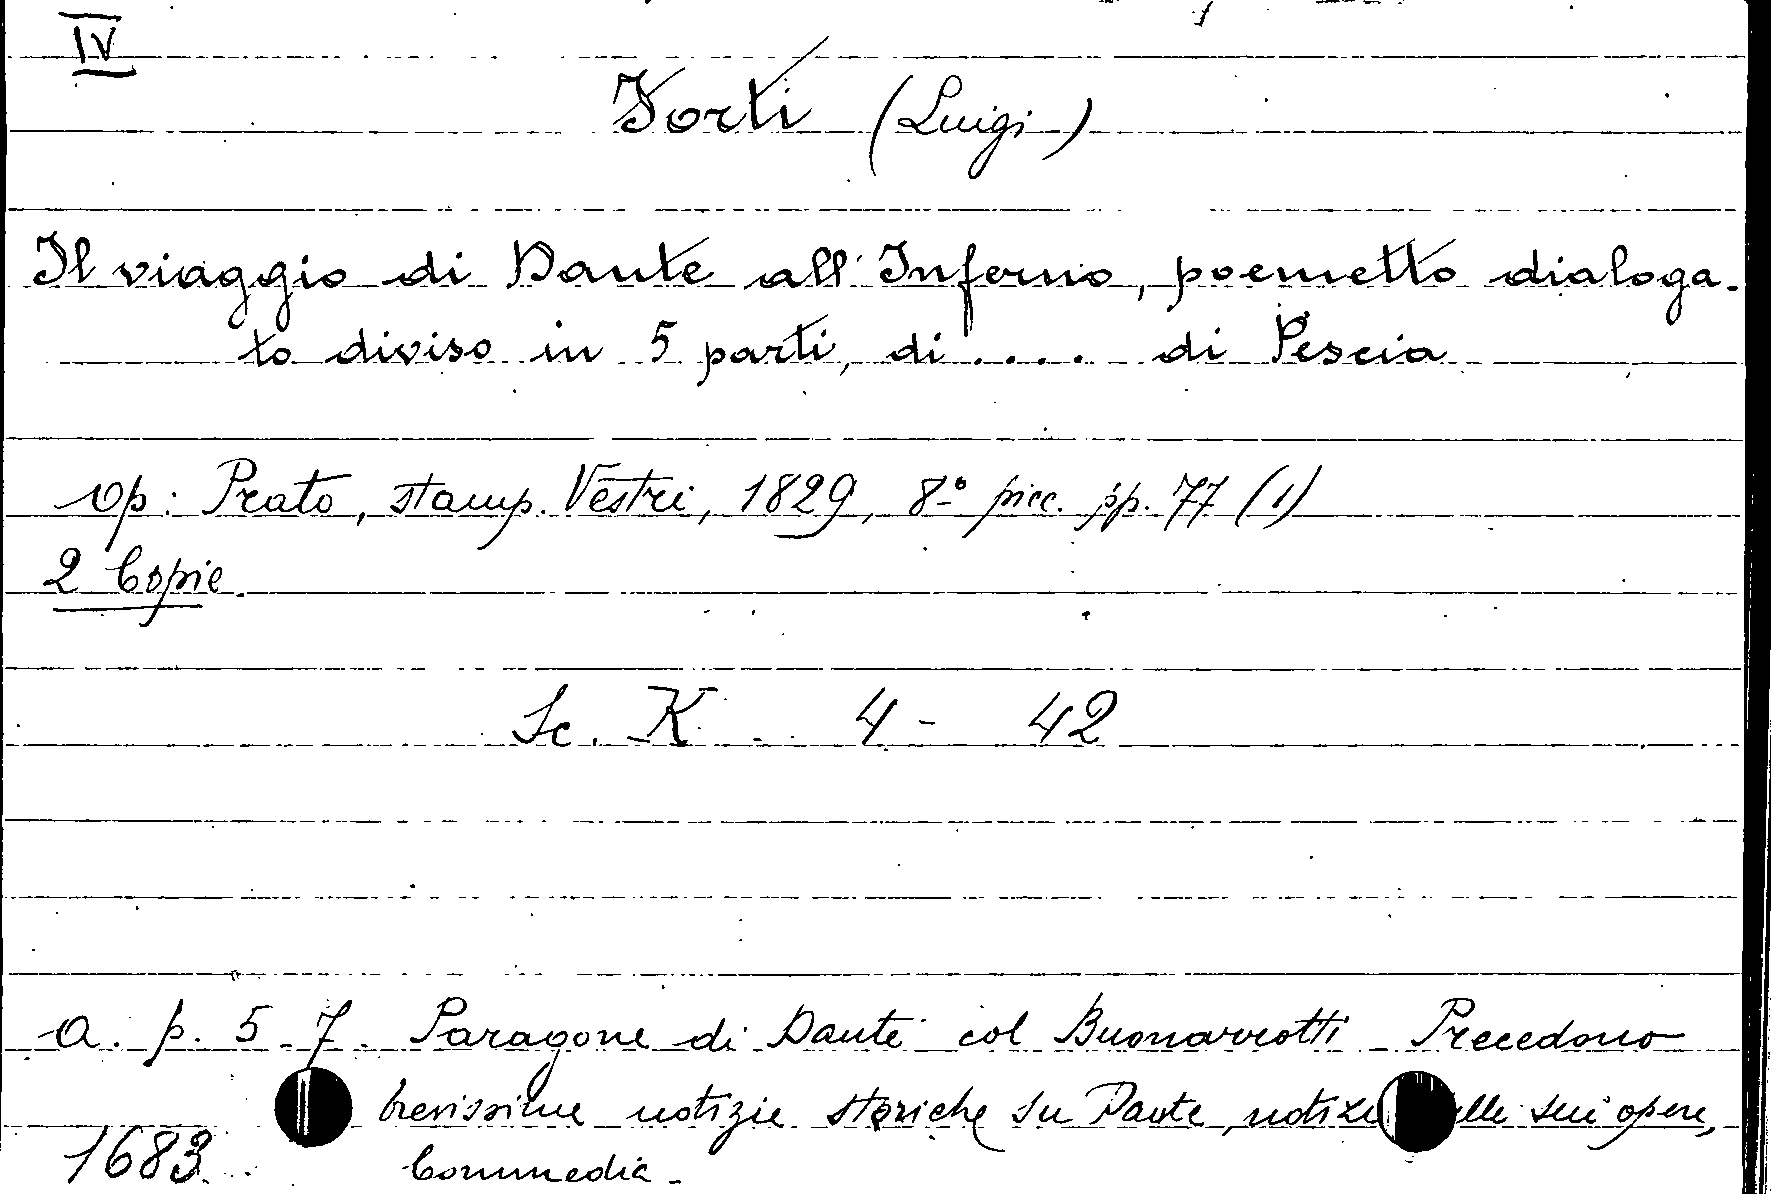 IV
Forti (Luigi)
Il viaggio di Dante all'Inferno, poemetto dialoga-
to diviso in 5 parti, di .... di Pescia
op: Prato, stamp. Vestri, 1829, 8-° picc. pp. 77 (1)
2 Copie.
Sc. K. 4 - 42
a. p. 5-7. Paragone di Dante col Buonarrotti - Precedono
brevissime notizie storiche su Dante, notizie sue opere,
1683. Commedia -